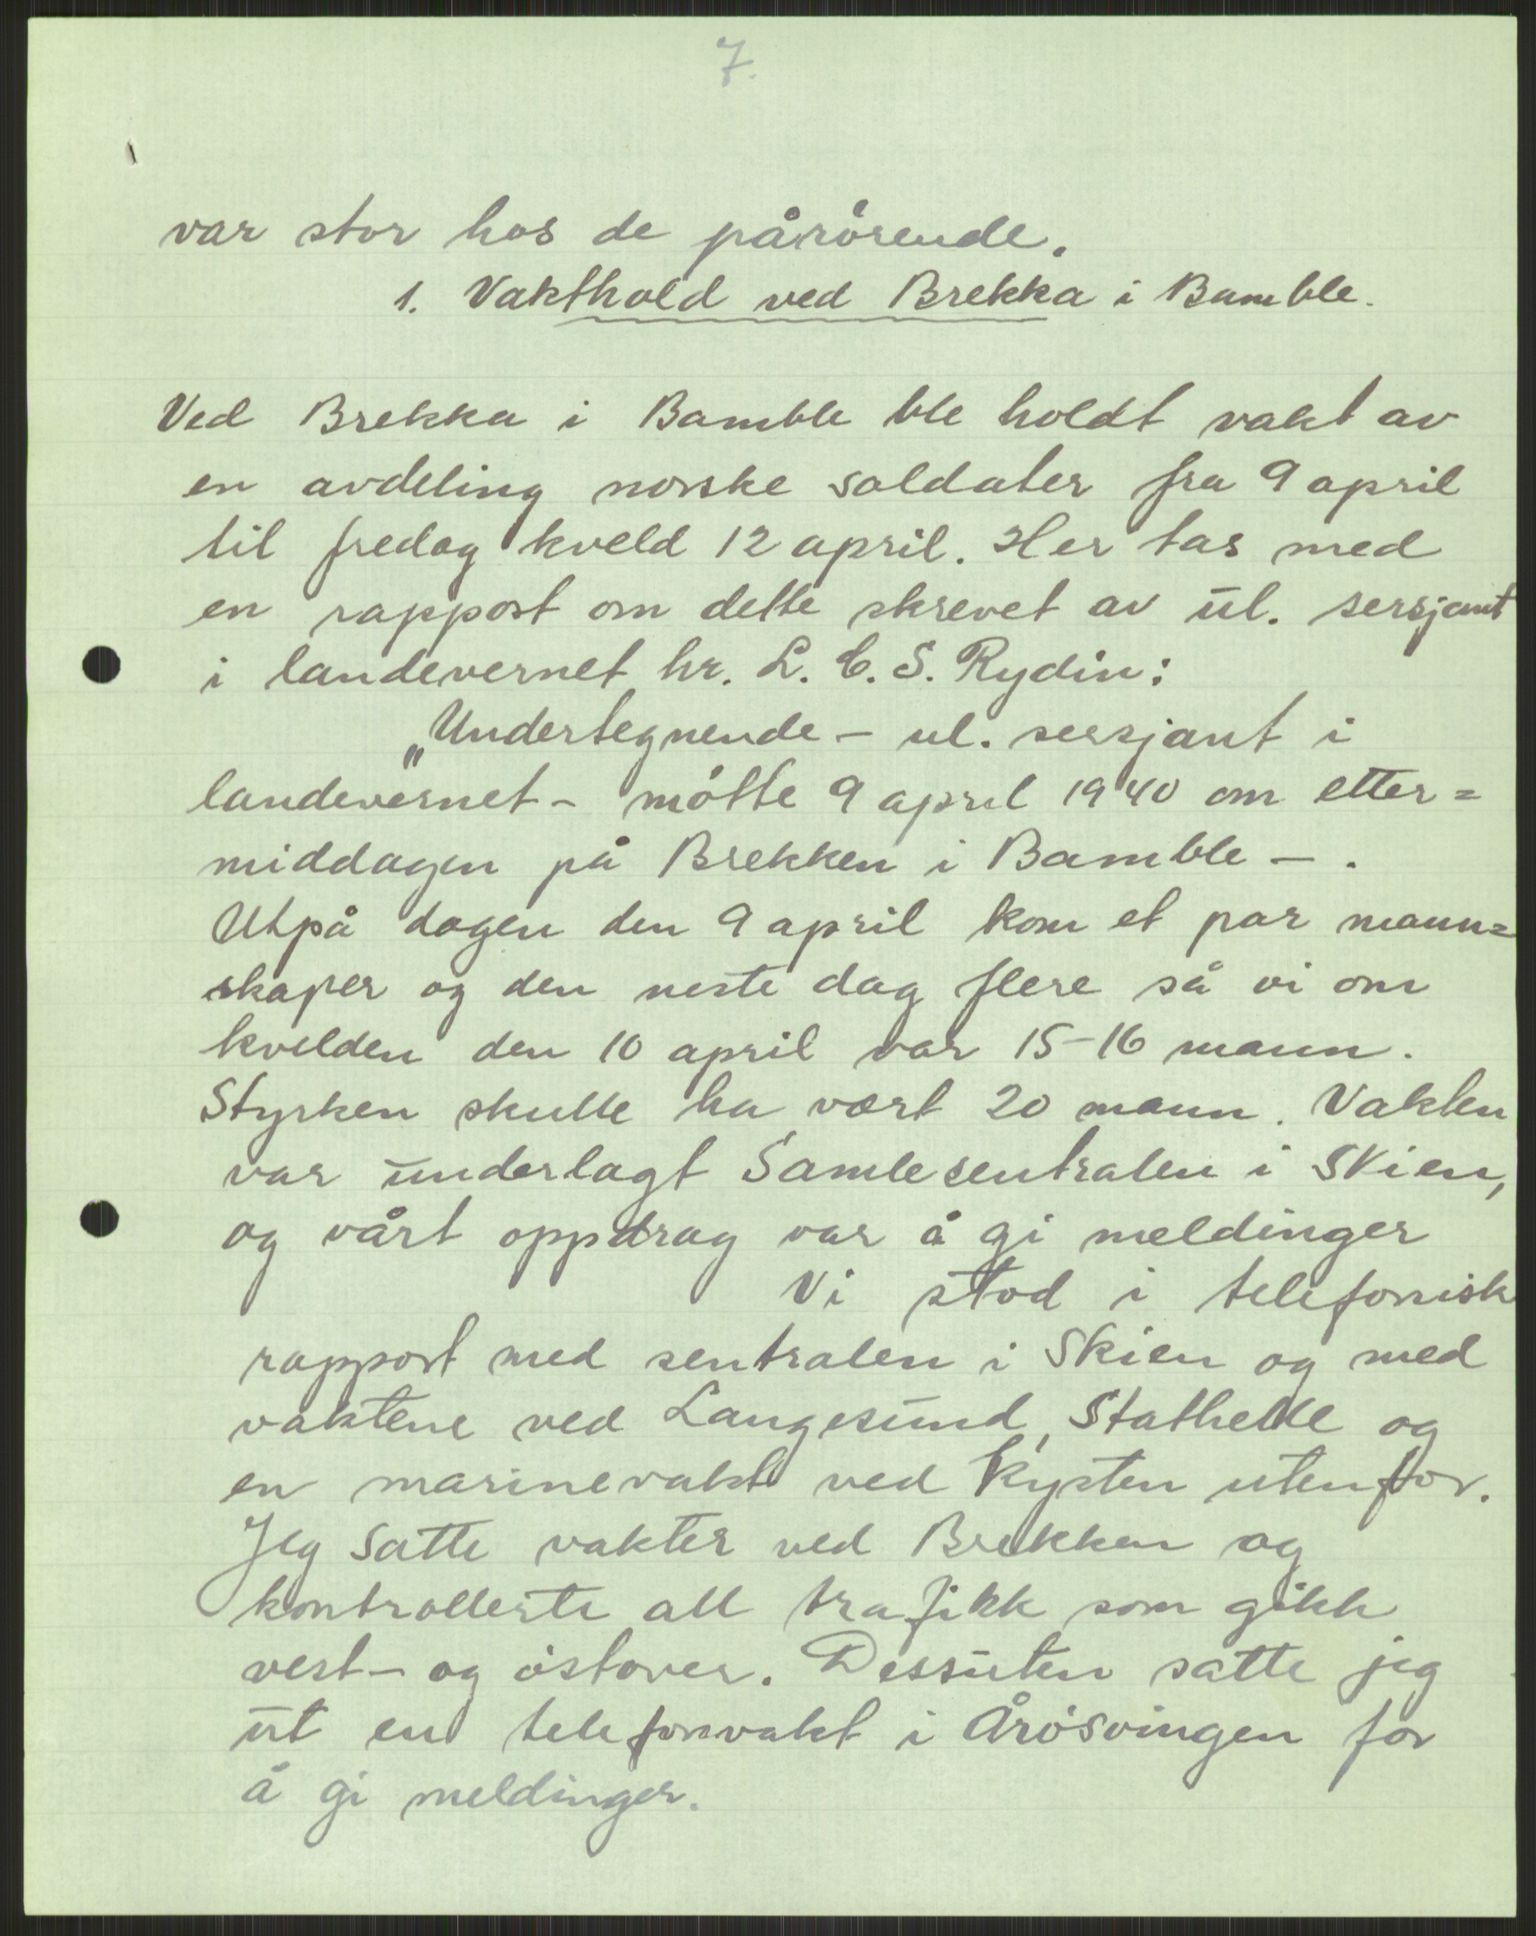 7.
var stor hos de pårørende.
1. Vakthold ved Brekka i Bamble.
Ved Brekka i Bamble ble holdt vakt av
en avdeling norske soldater fra 9 april
til fredag kveld 12 april. Her tas med
en rapport om dette skrevet av ul. sersjant
i landevernet hr. L. C. S. Rydin:
„Undertegnende - ul. sersjant i
landevernet - møtte 9 april 1940 om etter=
middagen på Brekken i Bamble - .
Utpå dagen den 9 april kom et par mann=
skaper og den neste dag flere så vi om
kvelden den 10 april var 15-16 mann.
Styrken skulle ha vært 20 mann. Vakten
var underlagt Samlesentralen i Skien,
og vårt oppdrag var å gi meldinger
Vi stod i telefonisk
rapport med sentralen i Skien og med
vaktene ved Langesund, Stathelle og
en marinevakt ved kysten utenfor.
Jeg satte vakter ved Brekken og
kontrollerte all trafikk som gikk
vest- og østover. Dessuten satte jeg
ut en telefonvakt i Årøsvingen for
å gi meldinger.